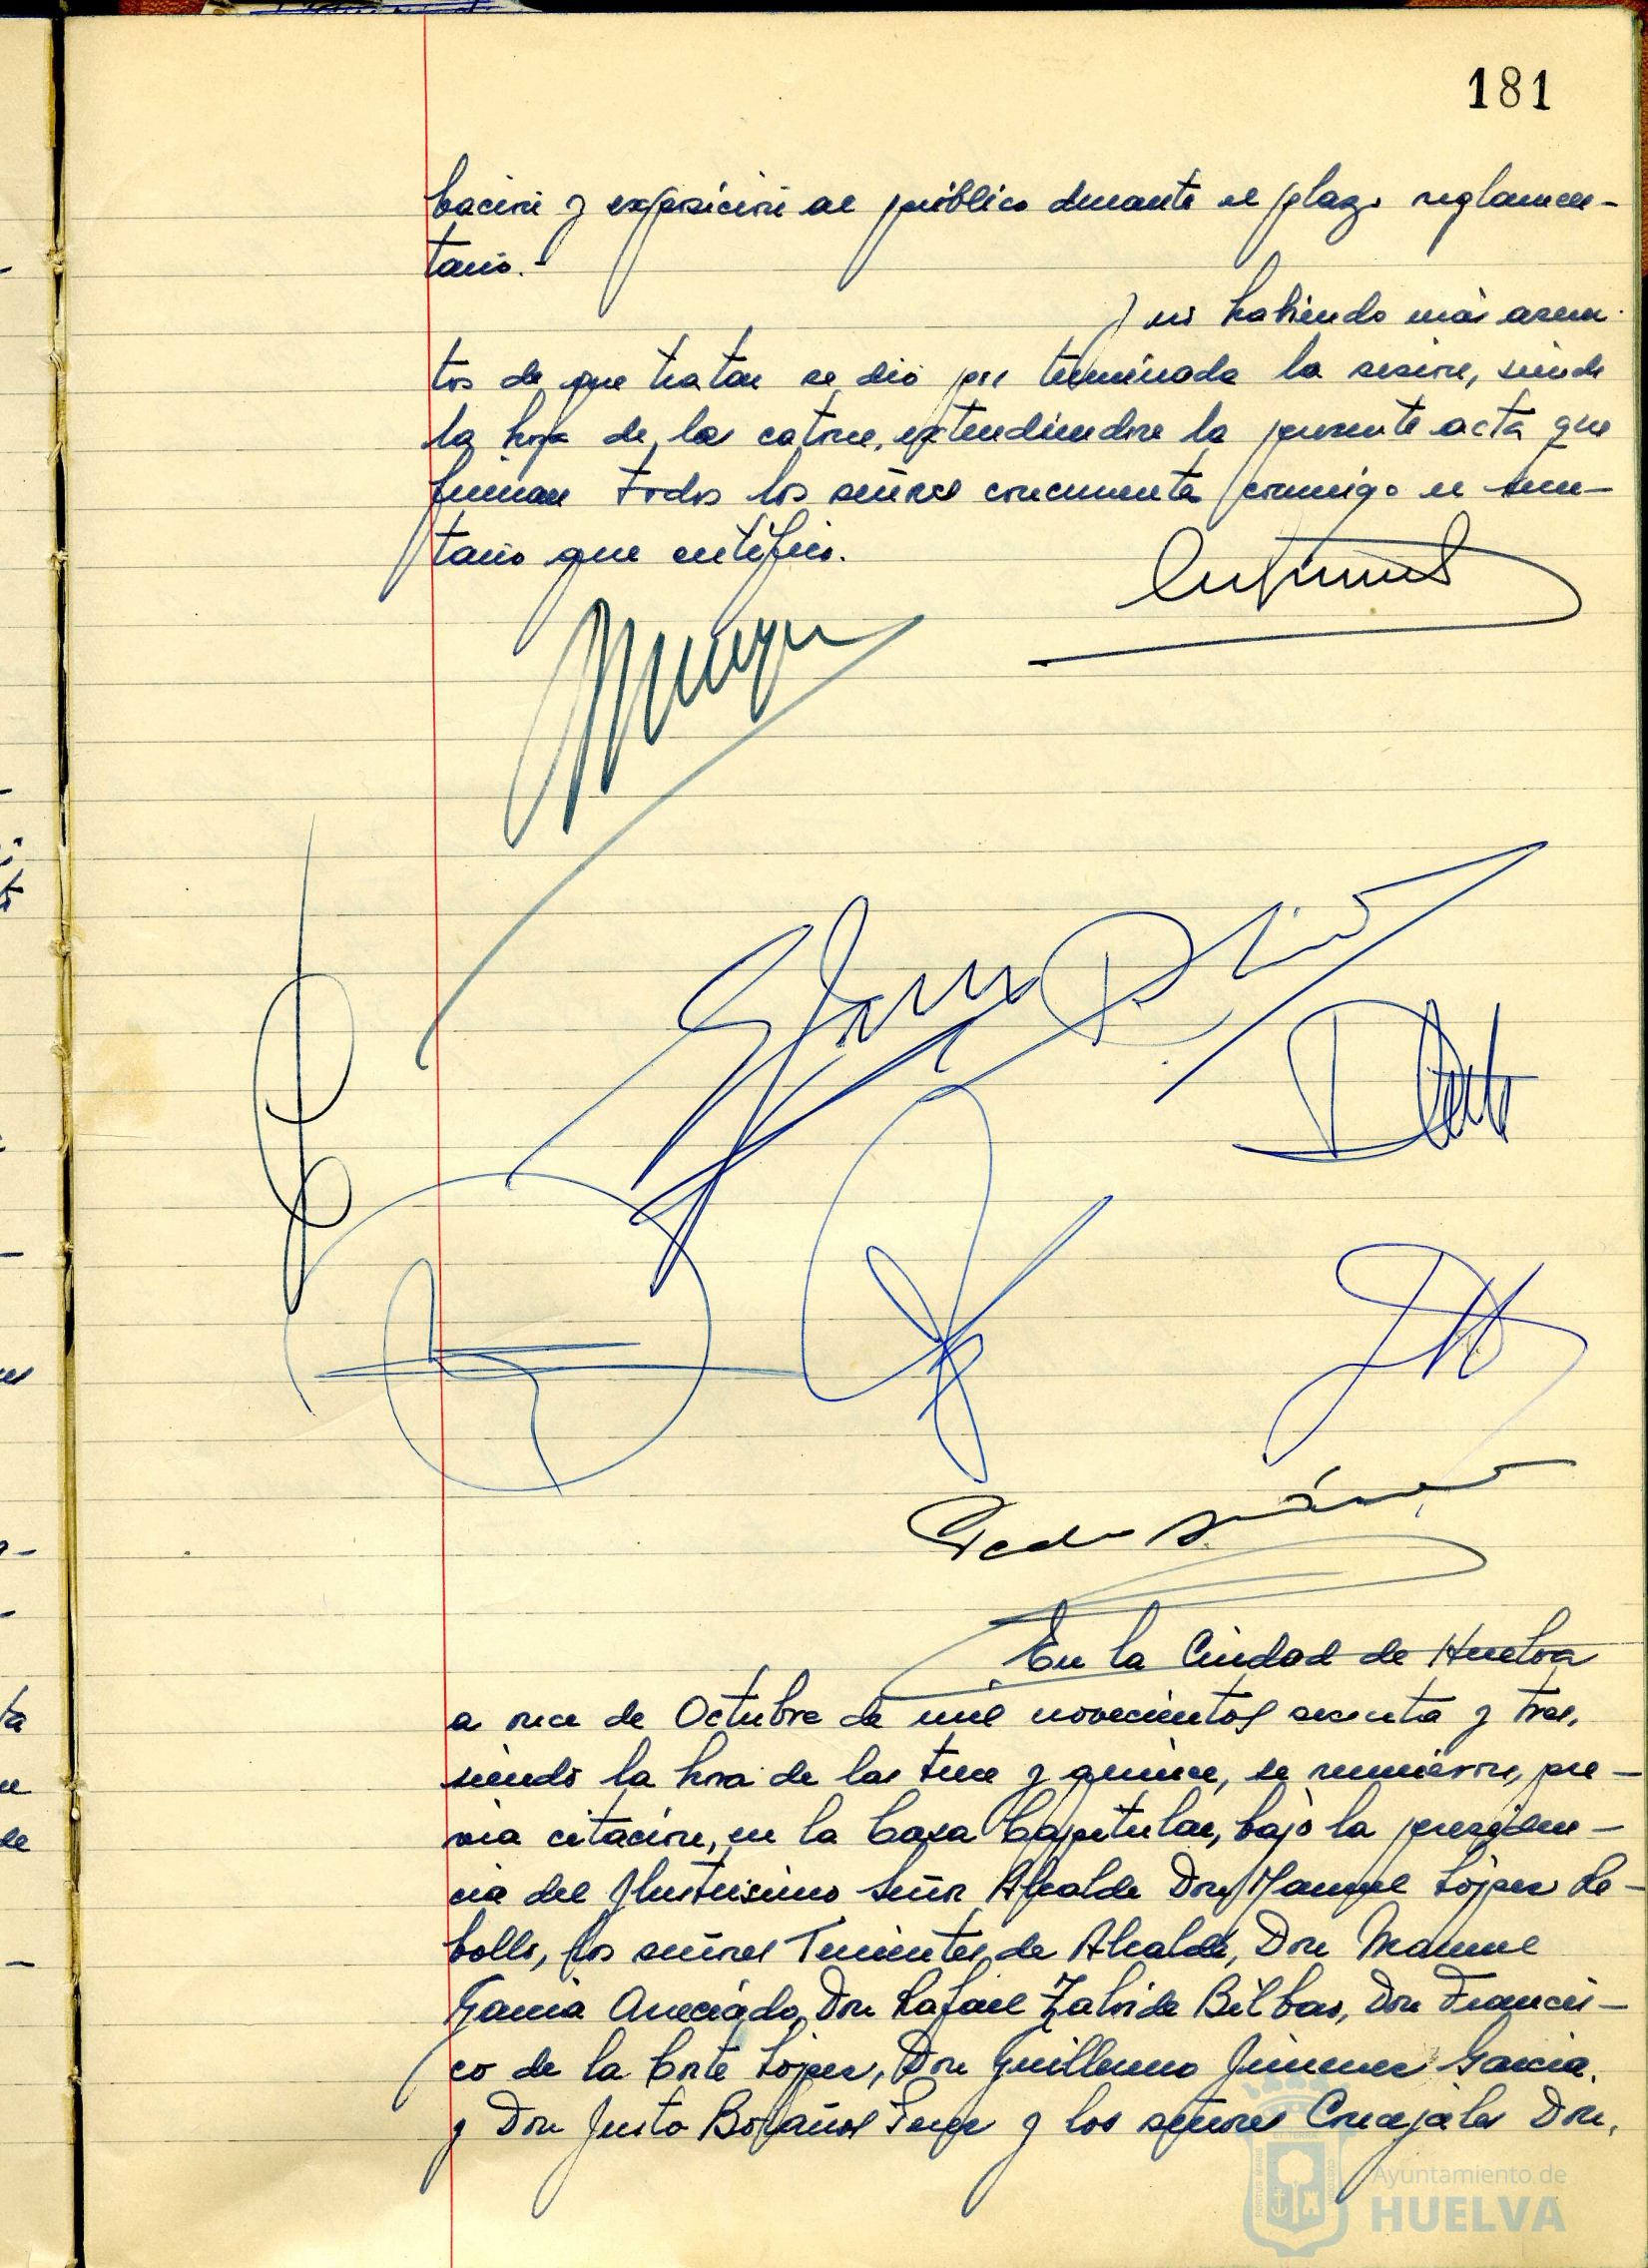 181
bación y exposición al público durante el plazo reglamen-
tario.-
Y no habiendo más asun-
tos de que tratar se dió por terminada la sesión, siendo
la hora de las catorce, extendiendose la presente acta que
firman todos los señores concurrentes conmigo el secre-
tario que certifico.
En la Ciudad de Huelva
a once de Octubre de mil novecientos sesenta y tres,
siendo la hora de las trece y quince, se reunieron, pre-
via citación, en la Casa Capitular, bajo la presiden-
cia del Ilustrisimo Señor Alcalde Don Manuel López Re-
bollo, los señores Tenientes de Alcalde, Don Manuel
Garcia Don Rafael Zalvide Bilbao, Don Francis-
co de la Corte López, Don Guillermo Jimenez Garcia,
y Don Justo Bolaños y los señores Concejales Don,
Ayuntamiento de
HUELVA